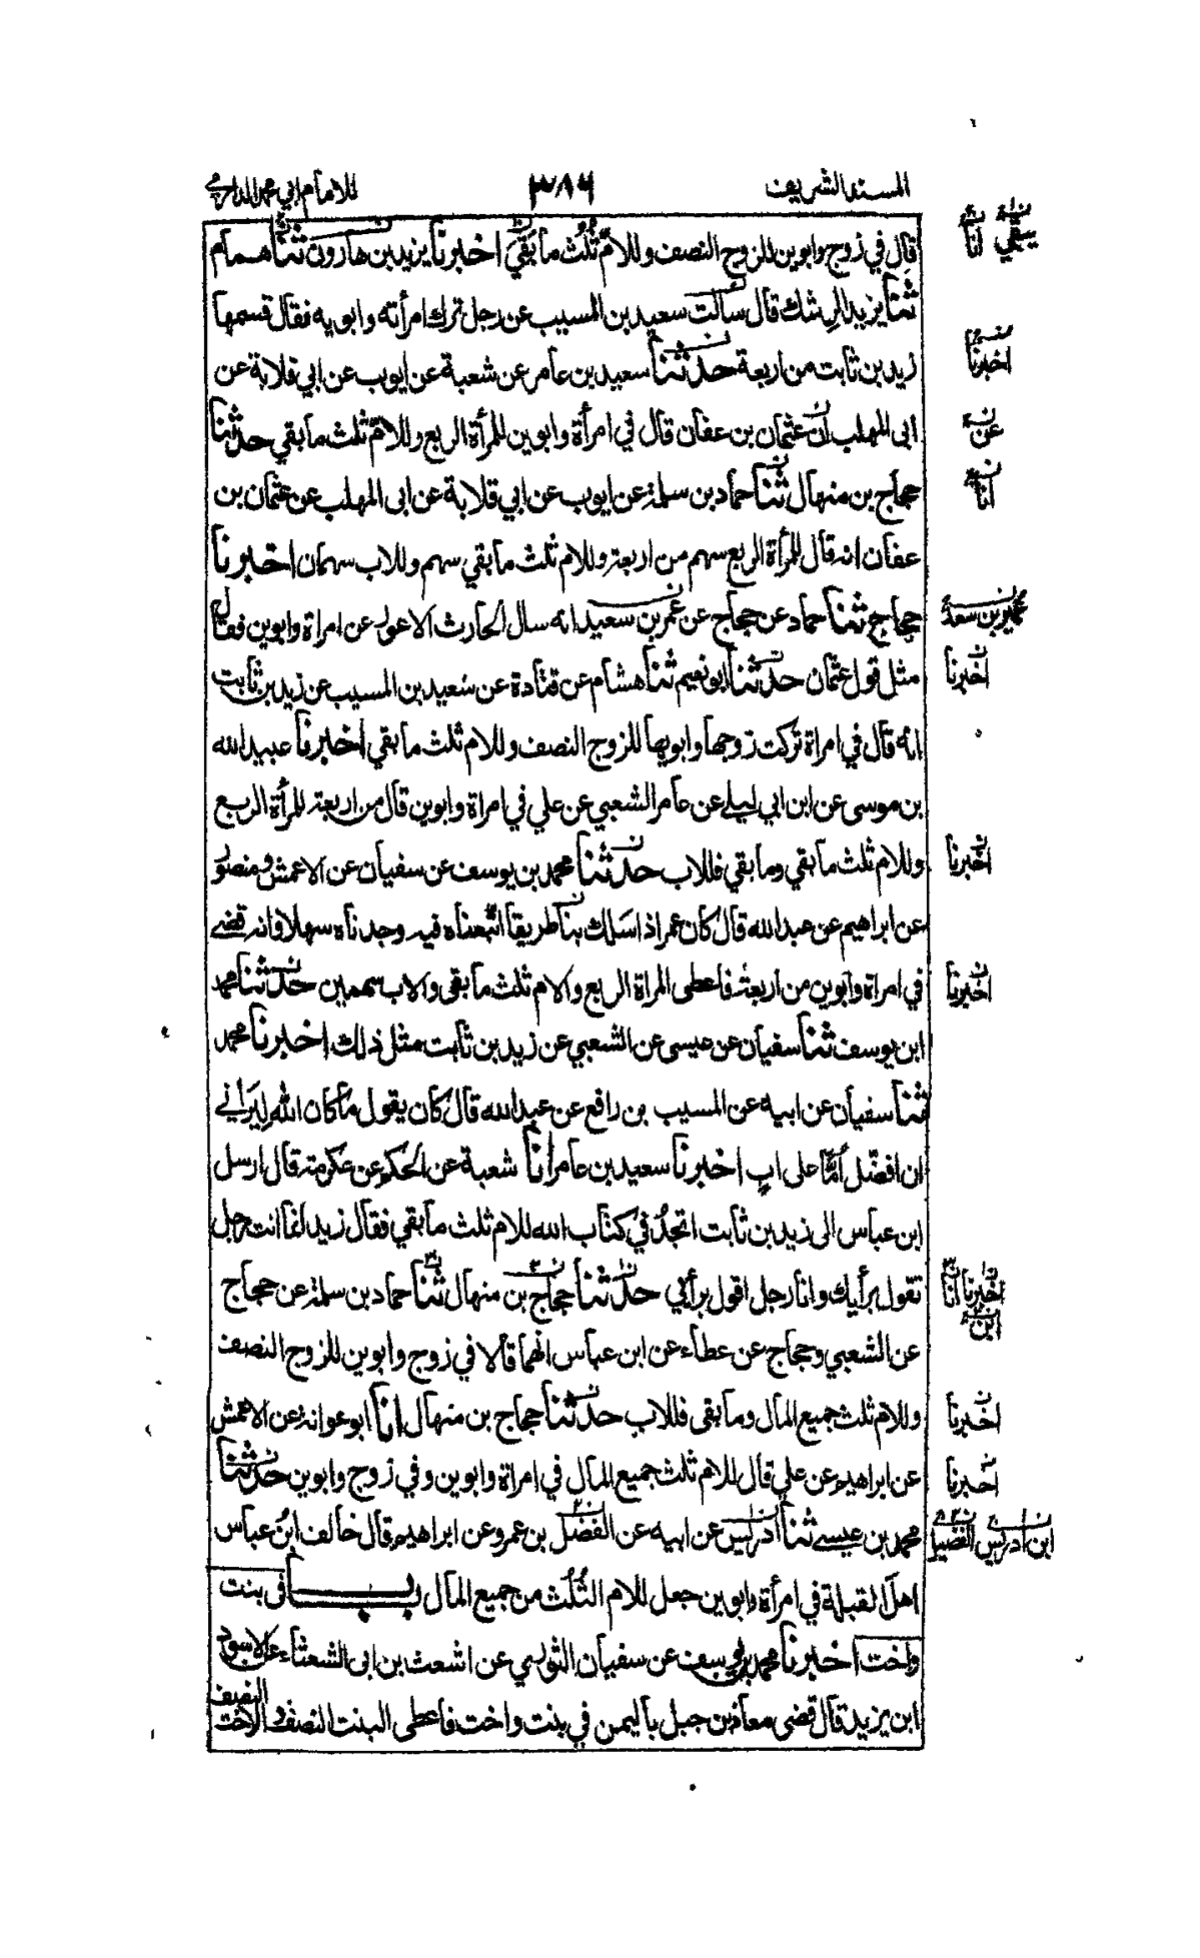 المسند الشريف ٣٨٦ للامام ابي محمد الدارمي
قال في زوج وابوين للزوج النصف وللام ثلث ما بقي اخبرنا يزيد بن هارون ثنا همام
ثنا يزيد الرشك قال سالت سعيد بن المسيب عن رجل ترك امرأته وابويه فقال قسمها
زيد بن ثابت من اربعة حدثنا سعيد بن عامر عن شعبة عن ايوب عن ابي قلابة عن
ابى المهلب ان عثمان بن عفان قال في امرأة وابوين للمرأة الربع وللام ثلث ما بقي حدثنا
حجاج بن منهال ثنا حماد بن سلمة عن ايوب عن ابي قلابة عن ابى المهلب عن عثمان بن
عفان انه قال للمرأة الربع سهم من اربعة وللام ثلث ما بقي سهم وللاب سهمان اخبرنا
حجاج ثنا حماد عن حجاج عن عمر بن سعيد انه سال الحارث الاعور عن امراة وابوين فقال
مثل قول عثمان حدثنا ابو نعيم ثنا هشام عن قتادة عن سعيد بن المسيب عن زيد بن ثابت
انه قال في امراة تركت زوجها وابويها للزوج النصف وللام ثلث ما بقي اخبرنا عبيد الله
بن موسى عن ابن ابي ليلے عن عامر الشعبي عن علي في امراة وابوين قال من اربعة للمرأة الربع
وللام ثلث ما بقي وما بقي فللاب حدثنا محمد بن يوسف عن سفيان عن الاعمش ومنصور
عن ابراهيم عن عبد الله قال كان عمر اذا سلك بنا طريقا اتبعناه فيه وجدناه سهلا وانه قضے
في امراة وابوين من اربعة فاعطى المراة الربع والام ثلث ما بقى والاب سهمين حدثنا محمد
ابن يوسف ثنا سفيان عن عيسى عن الشعبي عن زيد بن ثابت مثل ذلك اخبرنا محمد
ثنا سفيان عن ابيه عن المسيب بن رافع عن عبد الله قال كان يقول ما كان الله ليراني
ان افضّل أُمًّا على ابٍ اخبرنا سعيد بن عامر انا شعبة عن الحكم عن عكرمة قال ارسل
ابن عباس الى زيد بن ثابت اتجد في كتاب الله للام ثلث ما بقي فقال زيد انما انت رجل
تقول برأيك وانا رجل اقول برأي حدثنا حجاج بن منهال ثنا حماد بن سلمة عن حجاج
عن الشعبي وحجاج عن عطاء عن ابن عباس انهما قالا في زوج وابوين للزوج النصف
وللام ثلث جميع المال وما بقى فللاب حدثنا حجاج بن منهال انا ابو عوانة عن الاعمش
عن ابراهيم عن علي قال للام ثلث جميع المال في امراة وابوين وفي زوج وابوين حدثنا
محمد بن عيسے ثنا ادريس عن ابيه عن الفضل بن عمرو عن ابراهيم قال خالف ابن عباس
اهل القبلة في امرأة وابوين جعل للام الثلث من جميع المال باب فى بنت
واخت اخبرنا محمد بن يوسف عن سفيان الثوري عن اشعث بن ابى الشعثاء عن الاسود
ابن يزيد قال قضى معاذ بن جبل باليمن في بنت واخت فاعطى البنت النصف والاخت النصف
يبقي انا
اخبرنا
عن
انا
عمير بن سعد
اخبرنا
اخبرنا
اخبرنا
اخبرنا انا
ابن
اخبرنا
اخبرنا
ابن ادريس الفضيل